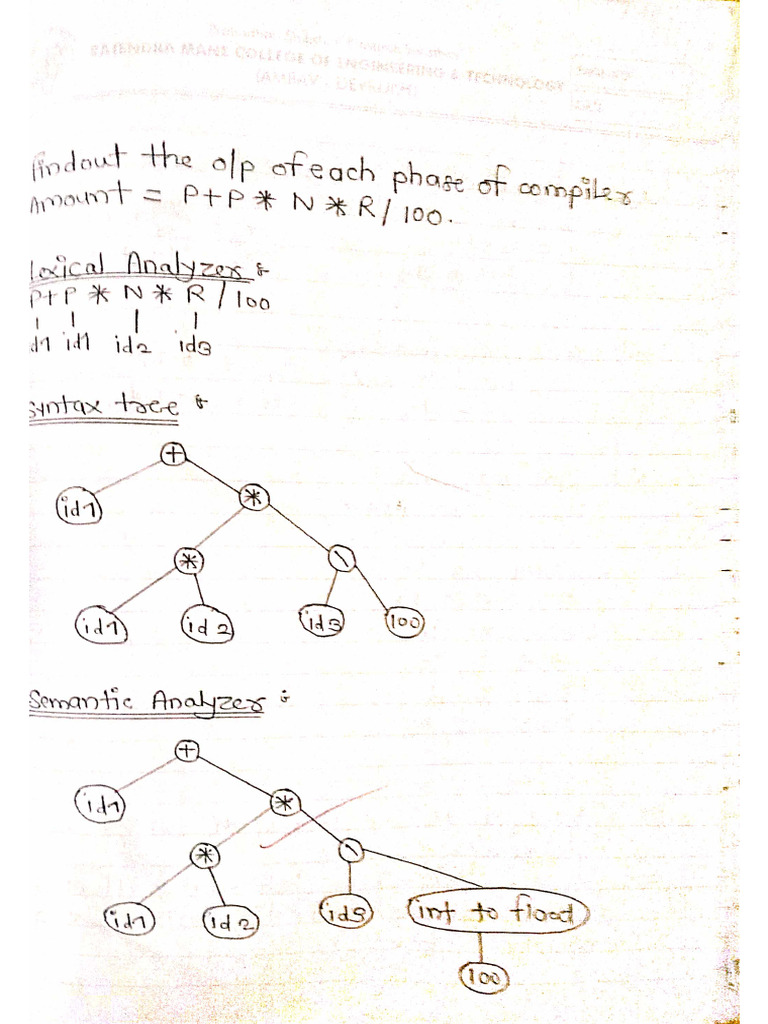 RAJENDRA MANE COLLEGE OF ENGINEERING & TECHNOLOGY
(AMBAV - DEVRUKH)
findout the o/p of each phase of compiler
Amount = P+P * N * R / 100.
Lexical Analyzer :
P+P * N * R / 100
id1 id1 id2 id3
Syntax tree :
+
id1 *
* \
id1 id2 id3 100
Semantic Analyzer :
+
id1 *
* \
id1 id2 id3 int to float
100